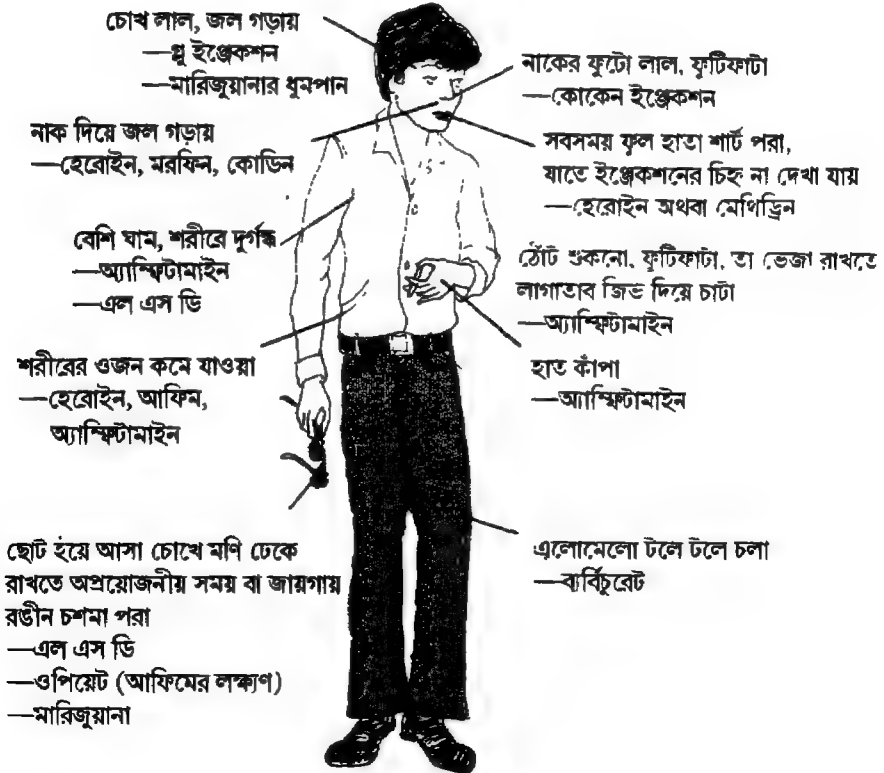 চোখ লাল, জল গড়ায়
—গ্লু ইঞ্জেকশন
—মারিজুয়ানার ধুমপান
নাক দিয়ে জল গড়ায়
—হেরোইন, মরফিন, কোডিন
বেশি ঘাম, শরীরে দুর্গন্ধ
—অ্যাম্ফিটামাইন
—এল এস ডি
শরীরের ওজন কমে যাওয়া
—হেরোইন, আফিম,
অ্যাম্ফিটামাইন
ছোট হয়ে আসা চোখে মণি ঢেকে
রাখতে অপ্রয়োজনীয় সময় বা জায়গায়
রঙীন চশমা পরা
—এল এস ডি
—ওপিয়েট (আফিমের লক্ষ্যণ)
—মারিজুয়ানা
নাকের ফুটো লাল, ফুটিফাটা
—কোকেন ইঞ্জেকশন
সবসময় ফুল হাতা শার্ট পরা,
যাতে ইঞ্জেকশনের চিহ্ন না দেখা যায়
—হেরোইন অথবা মেথিড্রিন
ঠোঁট শুকনো, ফুটিফাটা, তা ভেজা রাখতে
লাগাতাব জিভ দিয়ে চাটা
—অ্যাম্ফিটামাইন
হাত কাঁপা
—অ্যাম্ফিটামাইন
এলোমেলো টলে টলে চলা
—বার্বিচুরেট